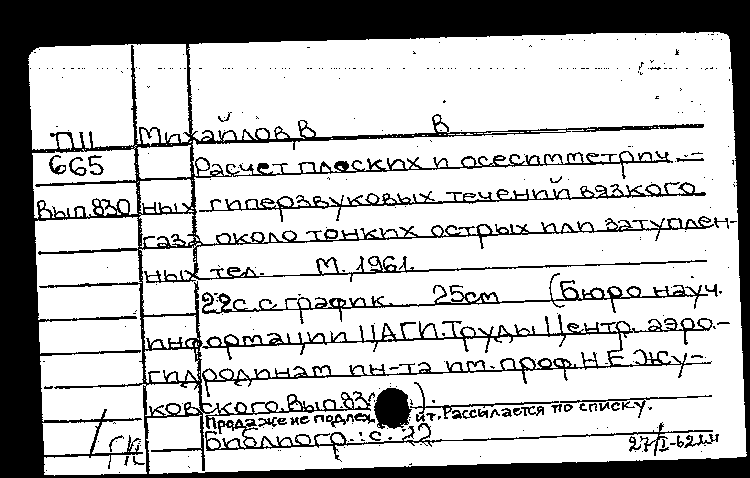 П11 Михайлов, В В
665 Расчет плоских и осесимметрич-
Вып.830 ных гиперзвуковых течений вязкого
газа около тонких острых или затуплен-
ных тел. М., 1961.
22с. с график. 25см (Бюро науч.
информации ЦАГИ. Труды Центр. аэро-
гидродинам ин-та им. проф. Н.Е. Жу-
ковского. Вып. 830).
Продаже не подлежит. Рассылается по списку.
Библиогр.: с. 22